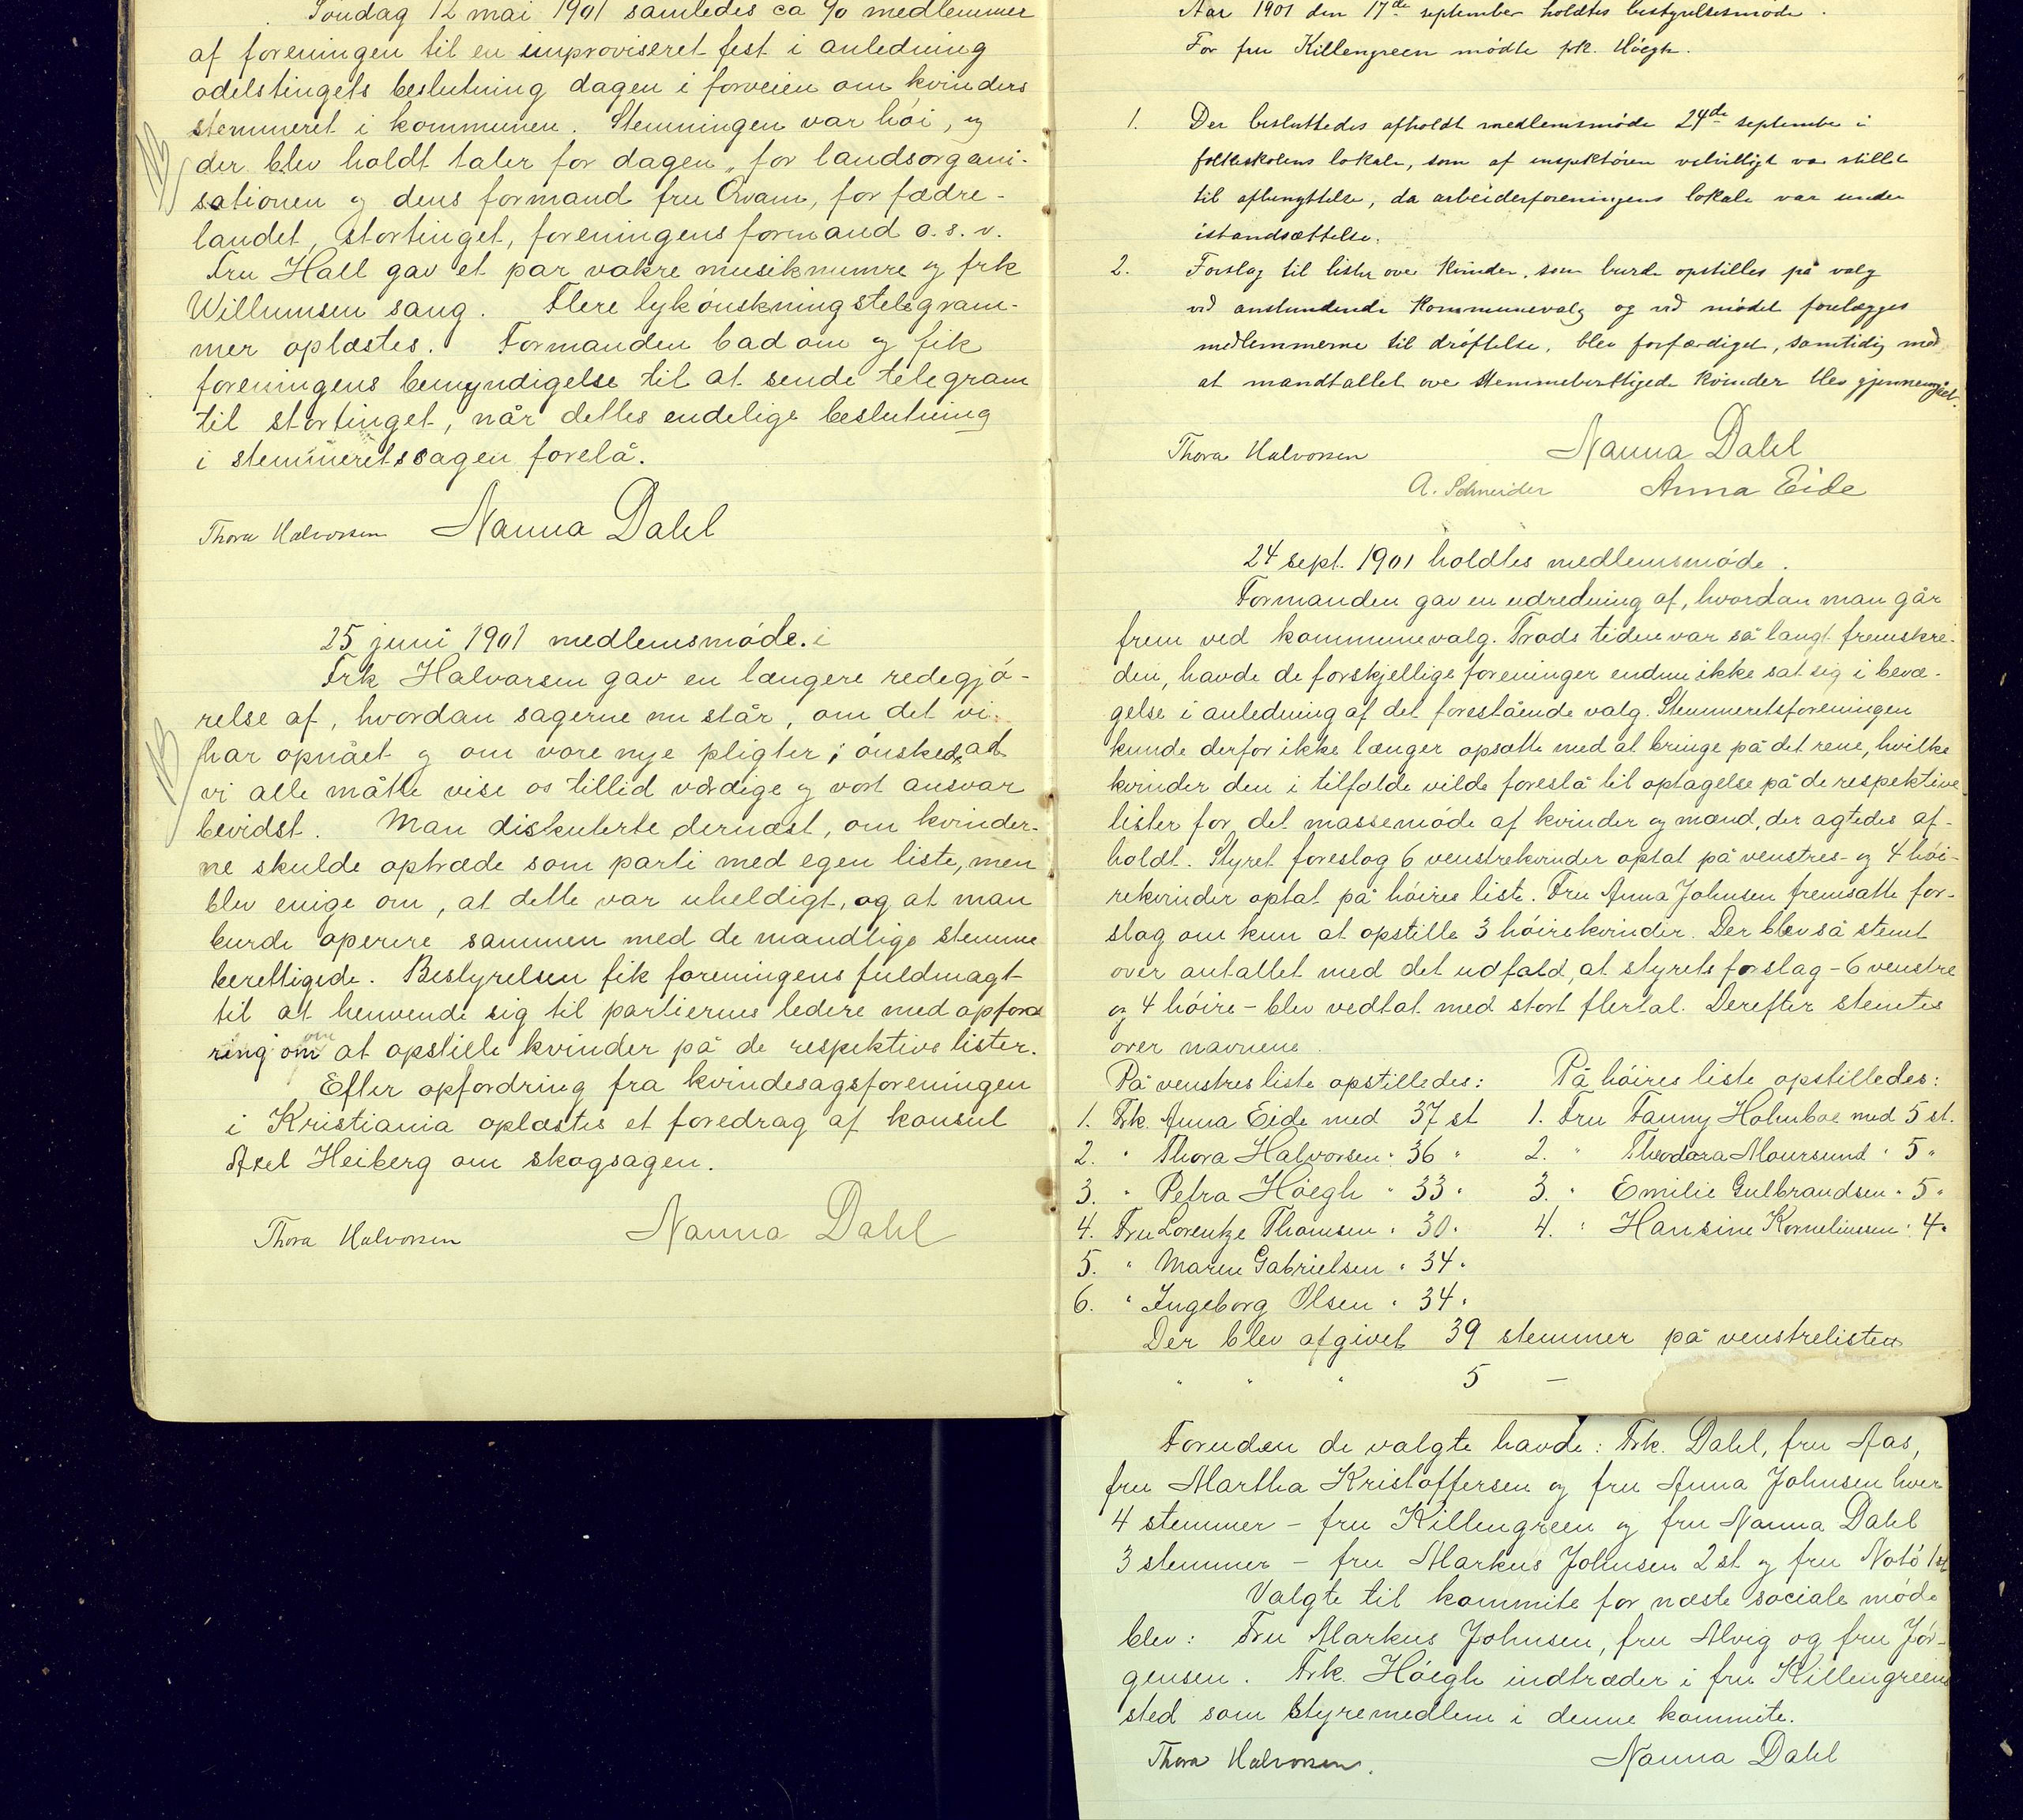 Søndag 12 mai 1901 samledes ca 90 medlemmer
af foreningen til en improviseret fest i anledning
odelstingets beslutning dagen i forveien om kvinders
stemmeret i kommunen. Stemningen var høi, og
der blev holdt taler for dagen, for landsorgani-
sationen og dens formand fru Qvam, for fædre-
landet, stortinget, foreningens formand o. s. v.
Fru Hall gav et par vakre musiknumre og frk
Willumsen sang. Flere lykønskningstelegram-
mer oplæstes. Formanden bad om og fik
foreningens bemyndigelse til at sende telegram
til stortinget, når dettes endelige beslutning
i stemmeretssagen forelå.
Thora Halvorsen Nanna Dahl
25 juni 1901 medlemsmøde. i
Frk Halvorsen gav en længere redegjø-
relse af, hvordan sagerne nu står, om det vi
NB har opnået og om vore nye pligter; ønsked, at
vi alle måtte vise os tillid værdige og vort ansvar
bevidst. Man diskuterte dernæst, om kvinder-
ne skulde optræde som parti med egen liste, men
blev enige om, at dette var uheldigt, og at man
burde operere sammen med de mandlige stemme
berettigede. Bestyrelsen fik foreningens fuldmagt
til at henvende sig til partiernes ledere med opford
ring om om at opstille kvinder på de respektive lister.
Efter opfordring fra kvindesagsforeningen
i Kristiania oplæstes et foredrag af konsul
Axel Heiberg om skogsagen.
Thora Halvorsen Nanna Dahl
Aar 1901 den 17de september holdtes bestyrelsesmøde.
For fru Killengreen mødte frk. Høegh.
1. Der besluttedes afholdt medlemsmøde 24de september i
folkeskolens lokale, som af inspektøren velvilligt var stillet
til afbenyttelse, da arbeiderforeningens lokale var under
istandsættelse.
2. Forslag til lister over kvinder, som burde opstilles på valg
ved anstundende kommunevalg og ved mødet forelægges
medlemmerne til drøftelse, blev forfærdiget, samtidig med
at mandtallet over stemmeberettigede kvinder blev gjennemgået.
Thora Halvorsen Nanna Dahl
A. Schneider Anna Eide
24 sept. 1901 holdtes medlemsmøde.
Formanden gav en udredning af, hvordan man går
frem ved kommunevalg. Trods tiden var så langt fremskre-
den, havde de forskjellige foreninger endnu ikke sat sig i bevæ-
gelse i anledning af det forestående valg. Stemmeretsforeningen
kunde derfor ikke længer opsætte med at bringe på det rene, hvilke
kvinder den i tilfælde vilde foreslå til optagelse på de respektive
lister for det massemøde af kvinder og mænd, der agtedes af-
holdt. Styret foreslog 6 venstrekvinder optat på venstres- og 4 høi-
rekvinder optat på høires liste. Fru Anna Johnsen fremsatte for-
slag om kun at opstille 3 høirekvinder. Der blev så stemt
over antallet med det udfald, at styrets forslag - 6 venstre
og 4 høire - blev vedtat med stort flertal. Derefter stemtes
over navnene.
På venstres liste opstilledes: På høires liste opstilledes:
1. Frk. Anna Eide med 37 st 1. Fru Fanny Holmboe med 5 st.
2. " Thora Halvorsen " 36 " 2. " Theodora Moursund " 5 "
3. " Petra Høegh " 33 " 3. " Emilie Gulbrandsen " 5 "
4. Fru Lorentze Thomsen " 30 " 4. " Hansine Korneliussen " 4 "
5. " Maren Gabrielsen " 34 "
6. " Ingeborg Olsen " 34 "
Der blev afgivet 39 stemmer på venstrelisten
" " " 5 —
Foruden de valgte havde: Frk. Dahl, fru Aas,
fru Martha Kristoffersen og fru Anna Johnsen hver
4 stemmer - fru Killengreen og fru Nanna Dahl
3 stemmer - fru Markus Johnsen 2 st og fru Notø 1 st
Valgte til kommite for næste sociale møde
blev: Fru Markus Johnsen, fru Alvig og fru Jør-
gensen. Frk. Høegh indtræder i fru Killengreens
sted som styremedlem i denne kommite.
Thora Halvorsen. Nanna Dahl